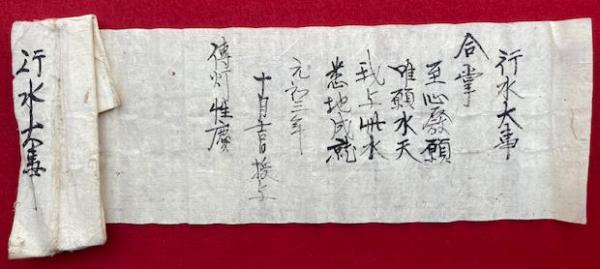 行水大事
合掌
至心發願
唯願水天
我与此水
悉地成就
元 三年
十月吉日授与
傳灯性慶
行水大事